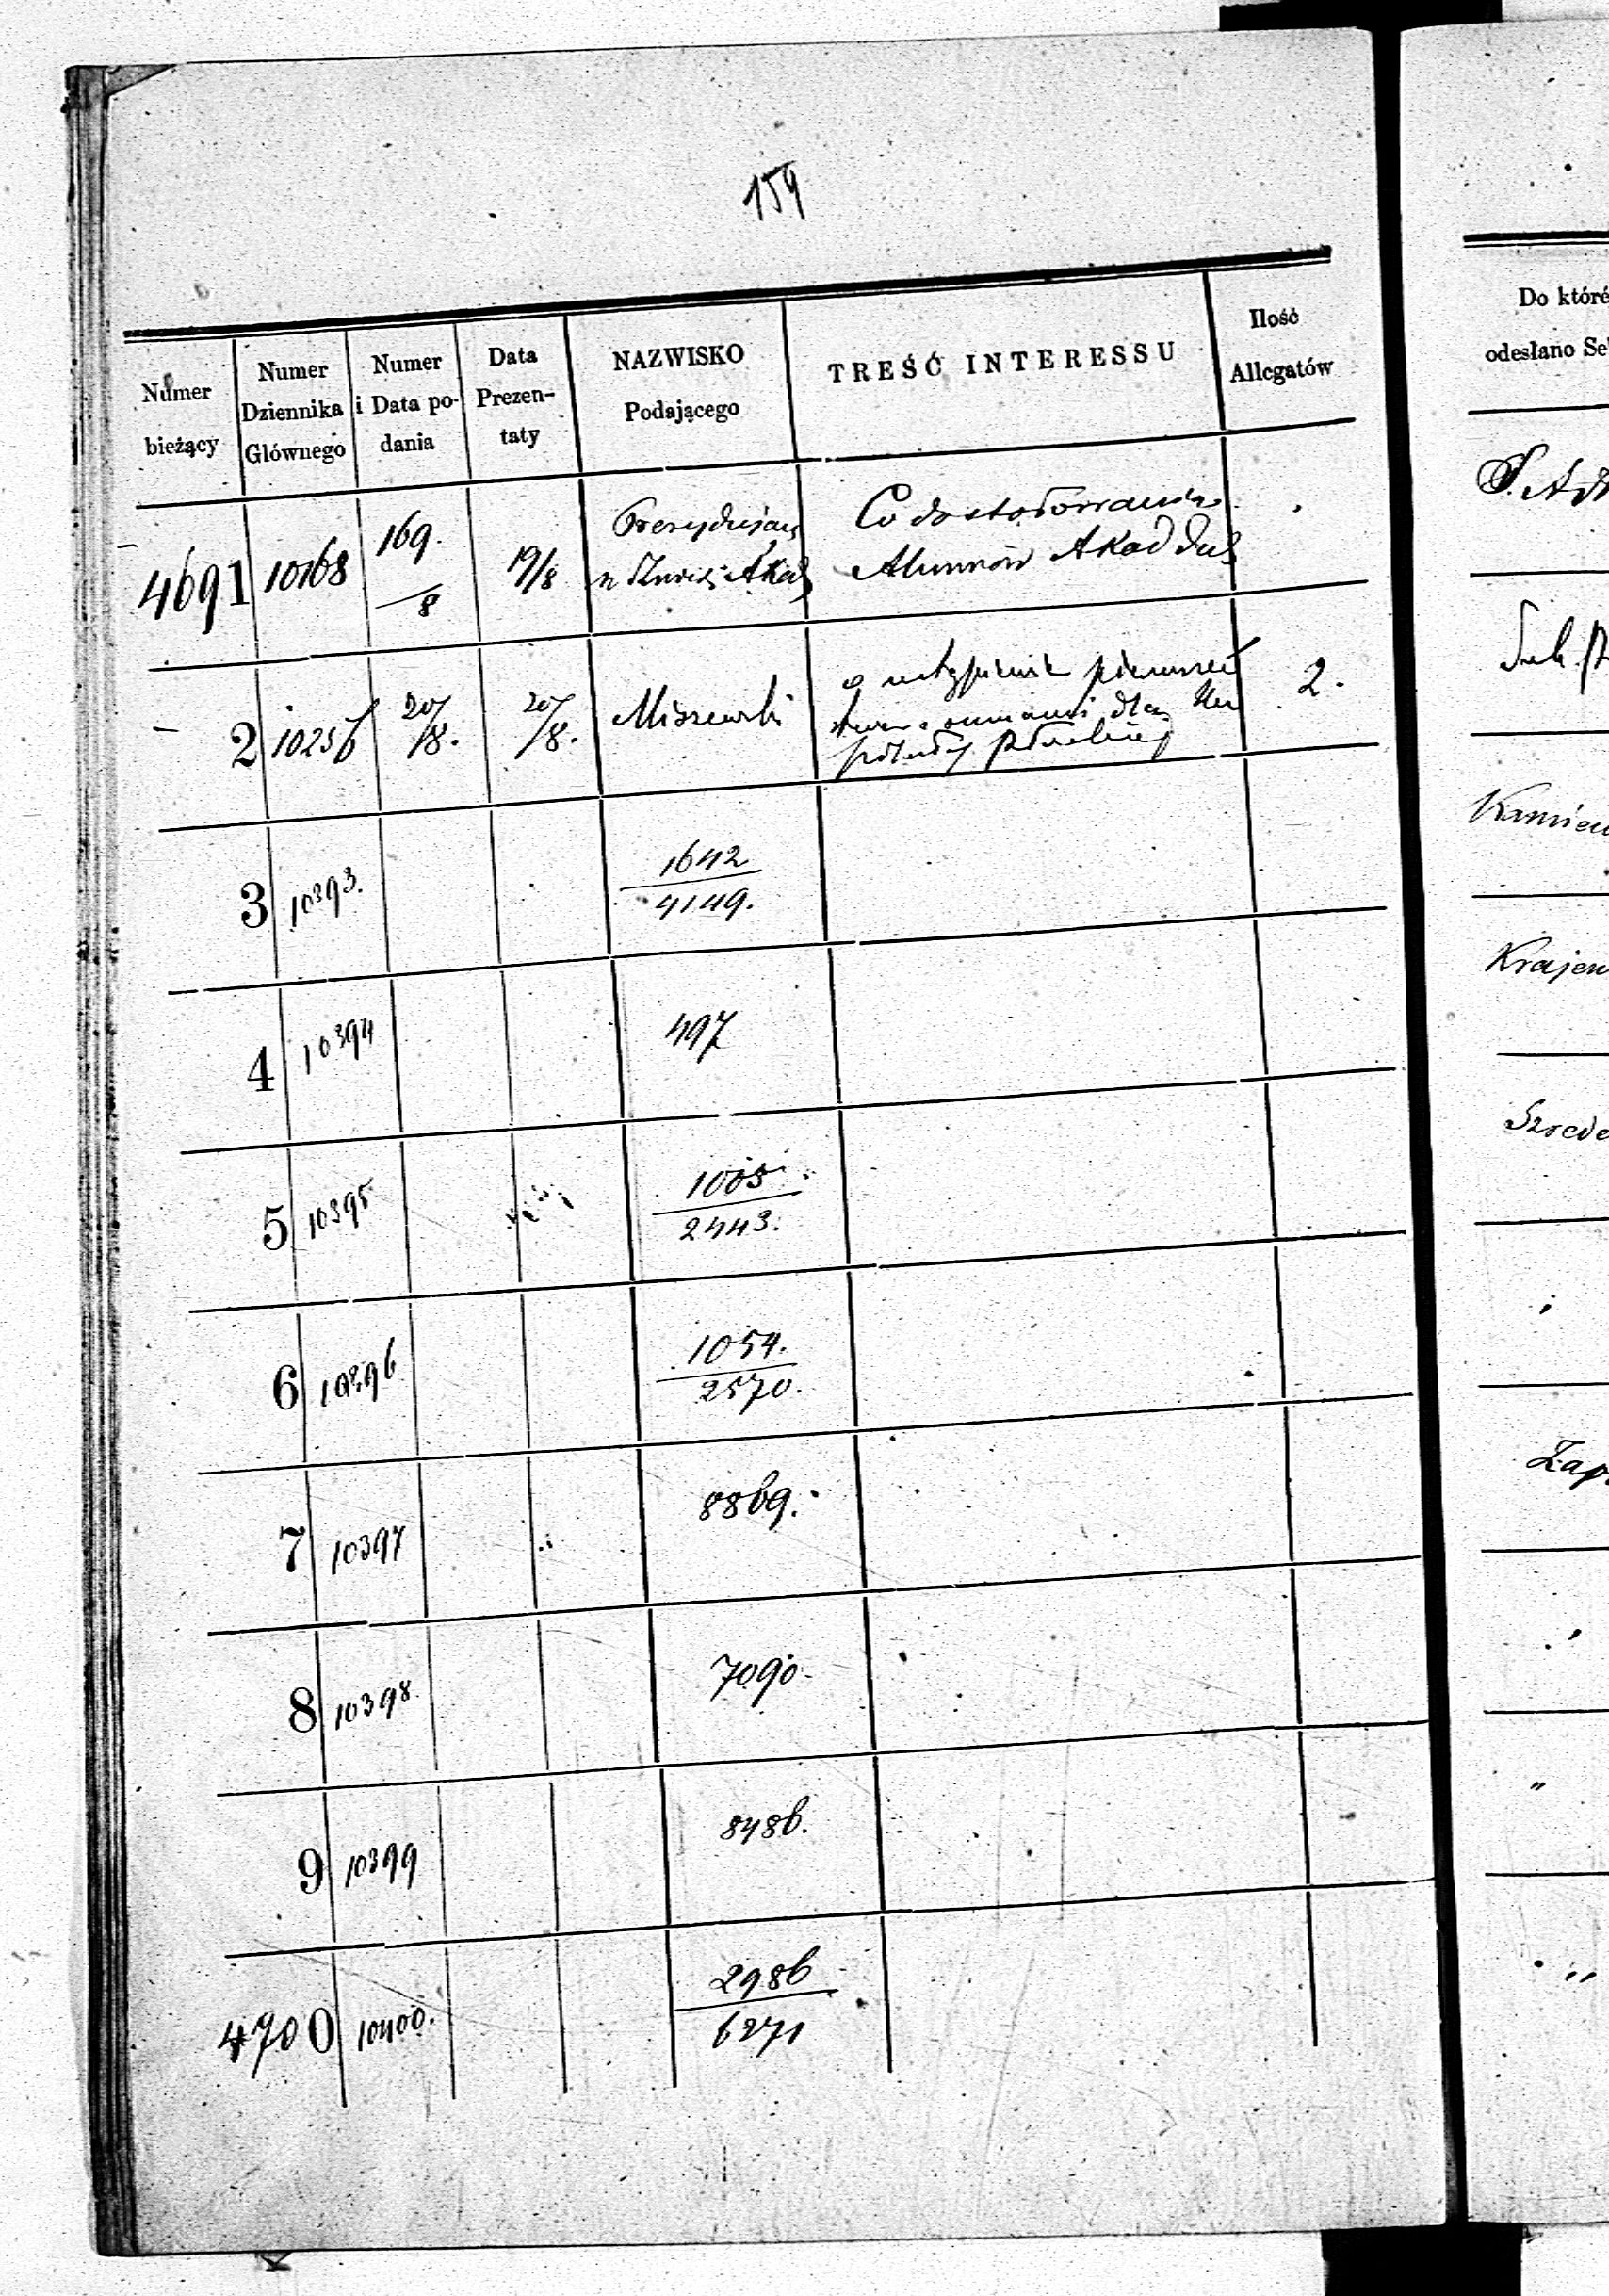 159
Numer bieżący
Numer Dziennika Głównego
Numer i Data podania
Data Prezentaty
NAZWISKO Podającego
TREŚĆ INTERESSU
Ilość Allegatów
Do któré
odesłano Se
4691 10168 169. /8 19/8 Akad Co do stołowania
Alumnów Akad Duch
2 1025 20/8. 20/8. Miszewski 2.
3 10393. 1642
4149.
Kamien
4 10394 497
Krajew
5 10395 1005
2443.
Szrede
6 10396 1054.
2570.
7 10397 8869.
Zap
8 10398 7090
9 10399 8486.
"
4700 10400. 2986
6271
"